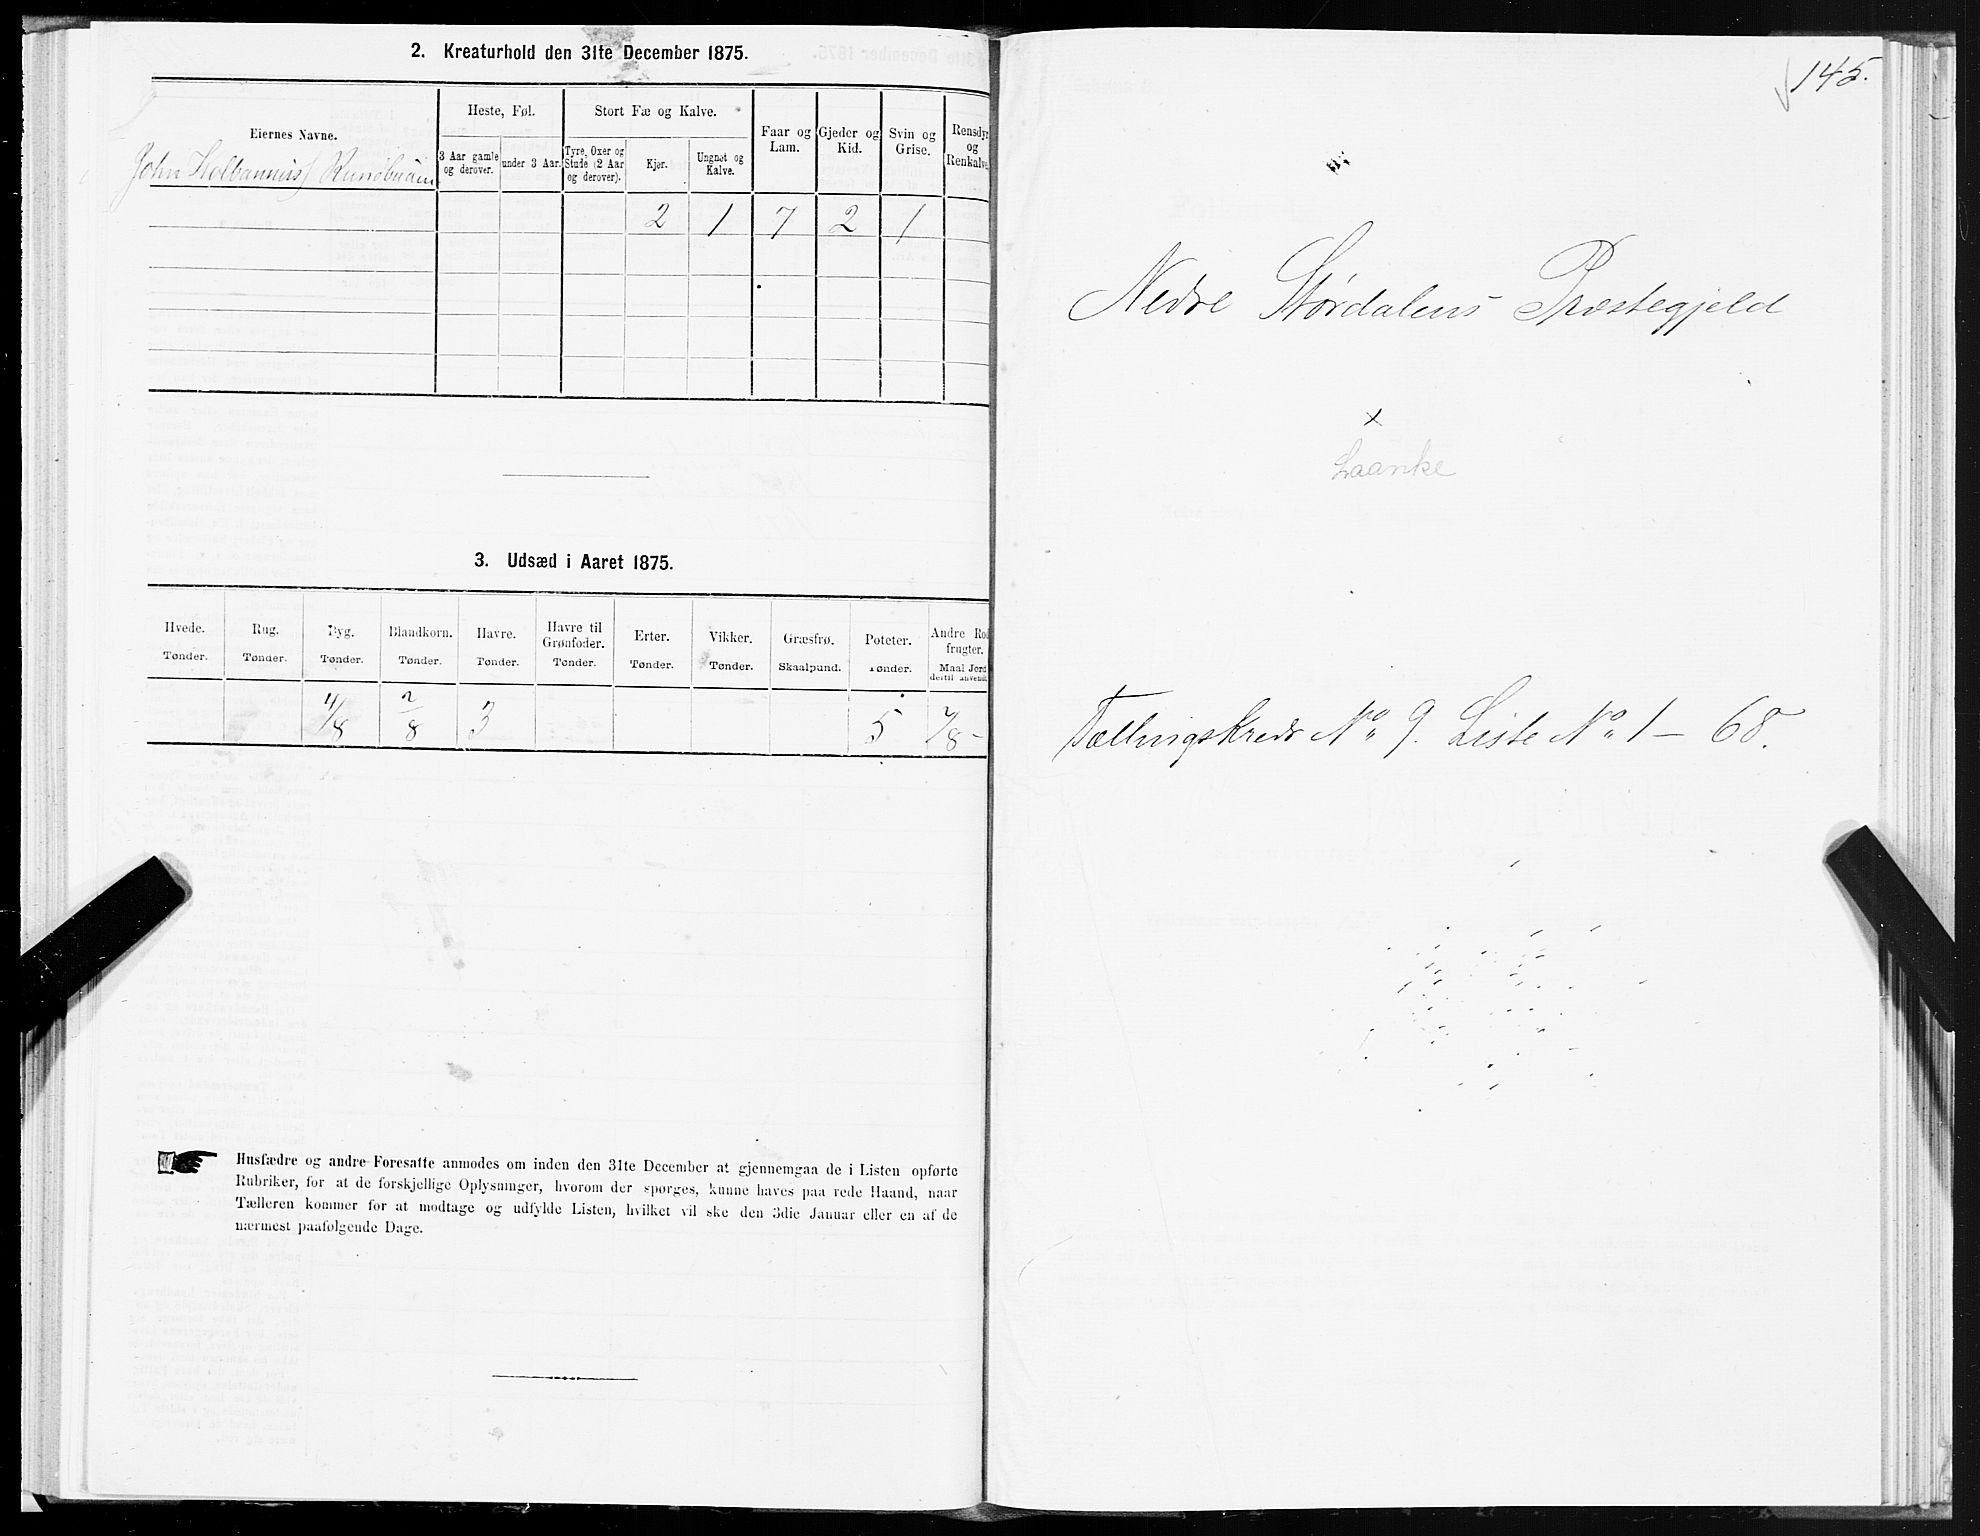 2. Kreaturhold den 31te December 1875.
Eiernes Navne.
Heste, Føl.
Stort Fæ og Kalve.
Faar og Lam.
Gjeder og Kid.
Svin og Grise.
Rensdyr og Renkalve
3 Aar gamle og derover.
under 3 Aar.
Tyre, Oxer og Stude (2 Aar og derover).
Kjør.
Ungnøt og Kalve.
John
2 1 7 2 1
3. Udsæd i Aaret 1875.
Hvede. Rug. Byg. Blandkorn. Havre. Havre til Grønfoder. Erter. Vikker. Græsfrø. Poteter. Andre Rod frugter.
Tønder. Tønder. Tønder. Tønder. Tønder. Tønder. Tønder. Tønder. Skaalpund. Tønder. Maal Jord dertil anvendt.
4/8 2/8 3 5 2/8 -
Husfædre og andre Foresatte anmodes om inden den 31te December at gjennemgaa de i Listen opførte
Rubriker, for at de forskjellige Oplysninger, hvorom der spørges, kunne haves paa rede Haand, naar
Tælleren kommer for at modtage og udfylde Listen, hvilket vil ske den 3die Januar eller en af de
nærmest paafølgende Dage.
145.
Nedre Størdalens Præstegjeld
x
Laanke
Tællingskreds No 9. Liste No 1 - 68.